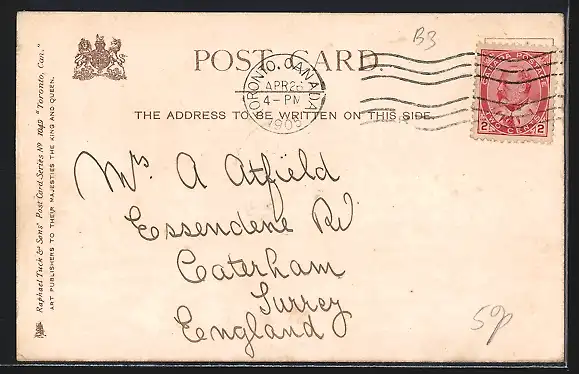 B3
POST CARD.
TORONTO, CANADA
APR 26
4 - PM
1903
CANADA POSTAGE
2 TWO CENTS 2
THE ADDRESS TO BE WRITTEN ON THIS SIDE.
Mrs A Atfield
Essendene Rd
Caterham
Surrey
England
50p
Raphael Tuck & Sons' Post Card Series No 1049 "Toronto, Can."
ART PUBLISHERS TO THEIR MAJESTIES THE KING AND QUEEN.